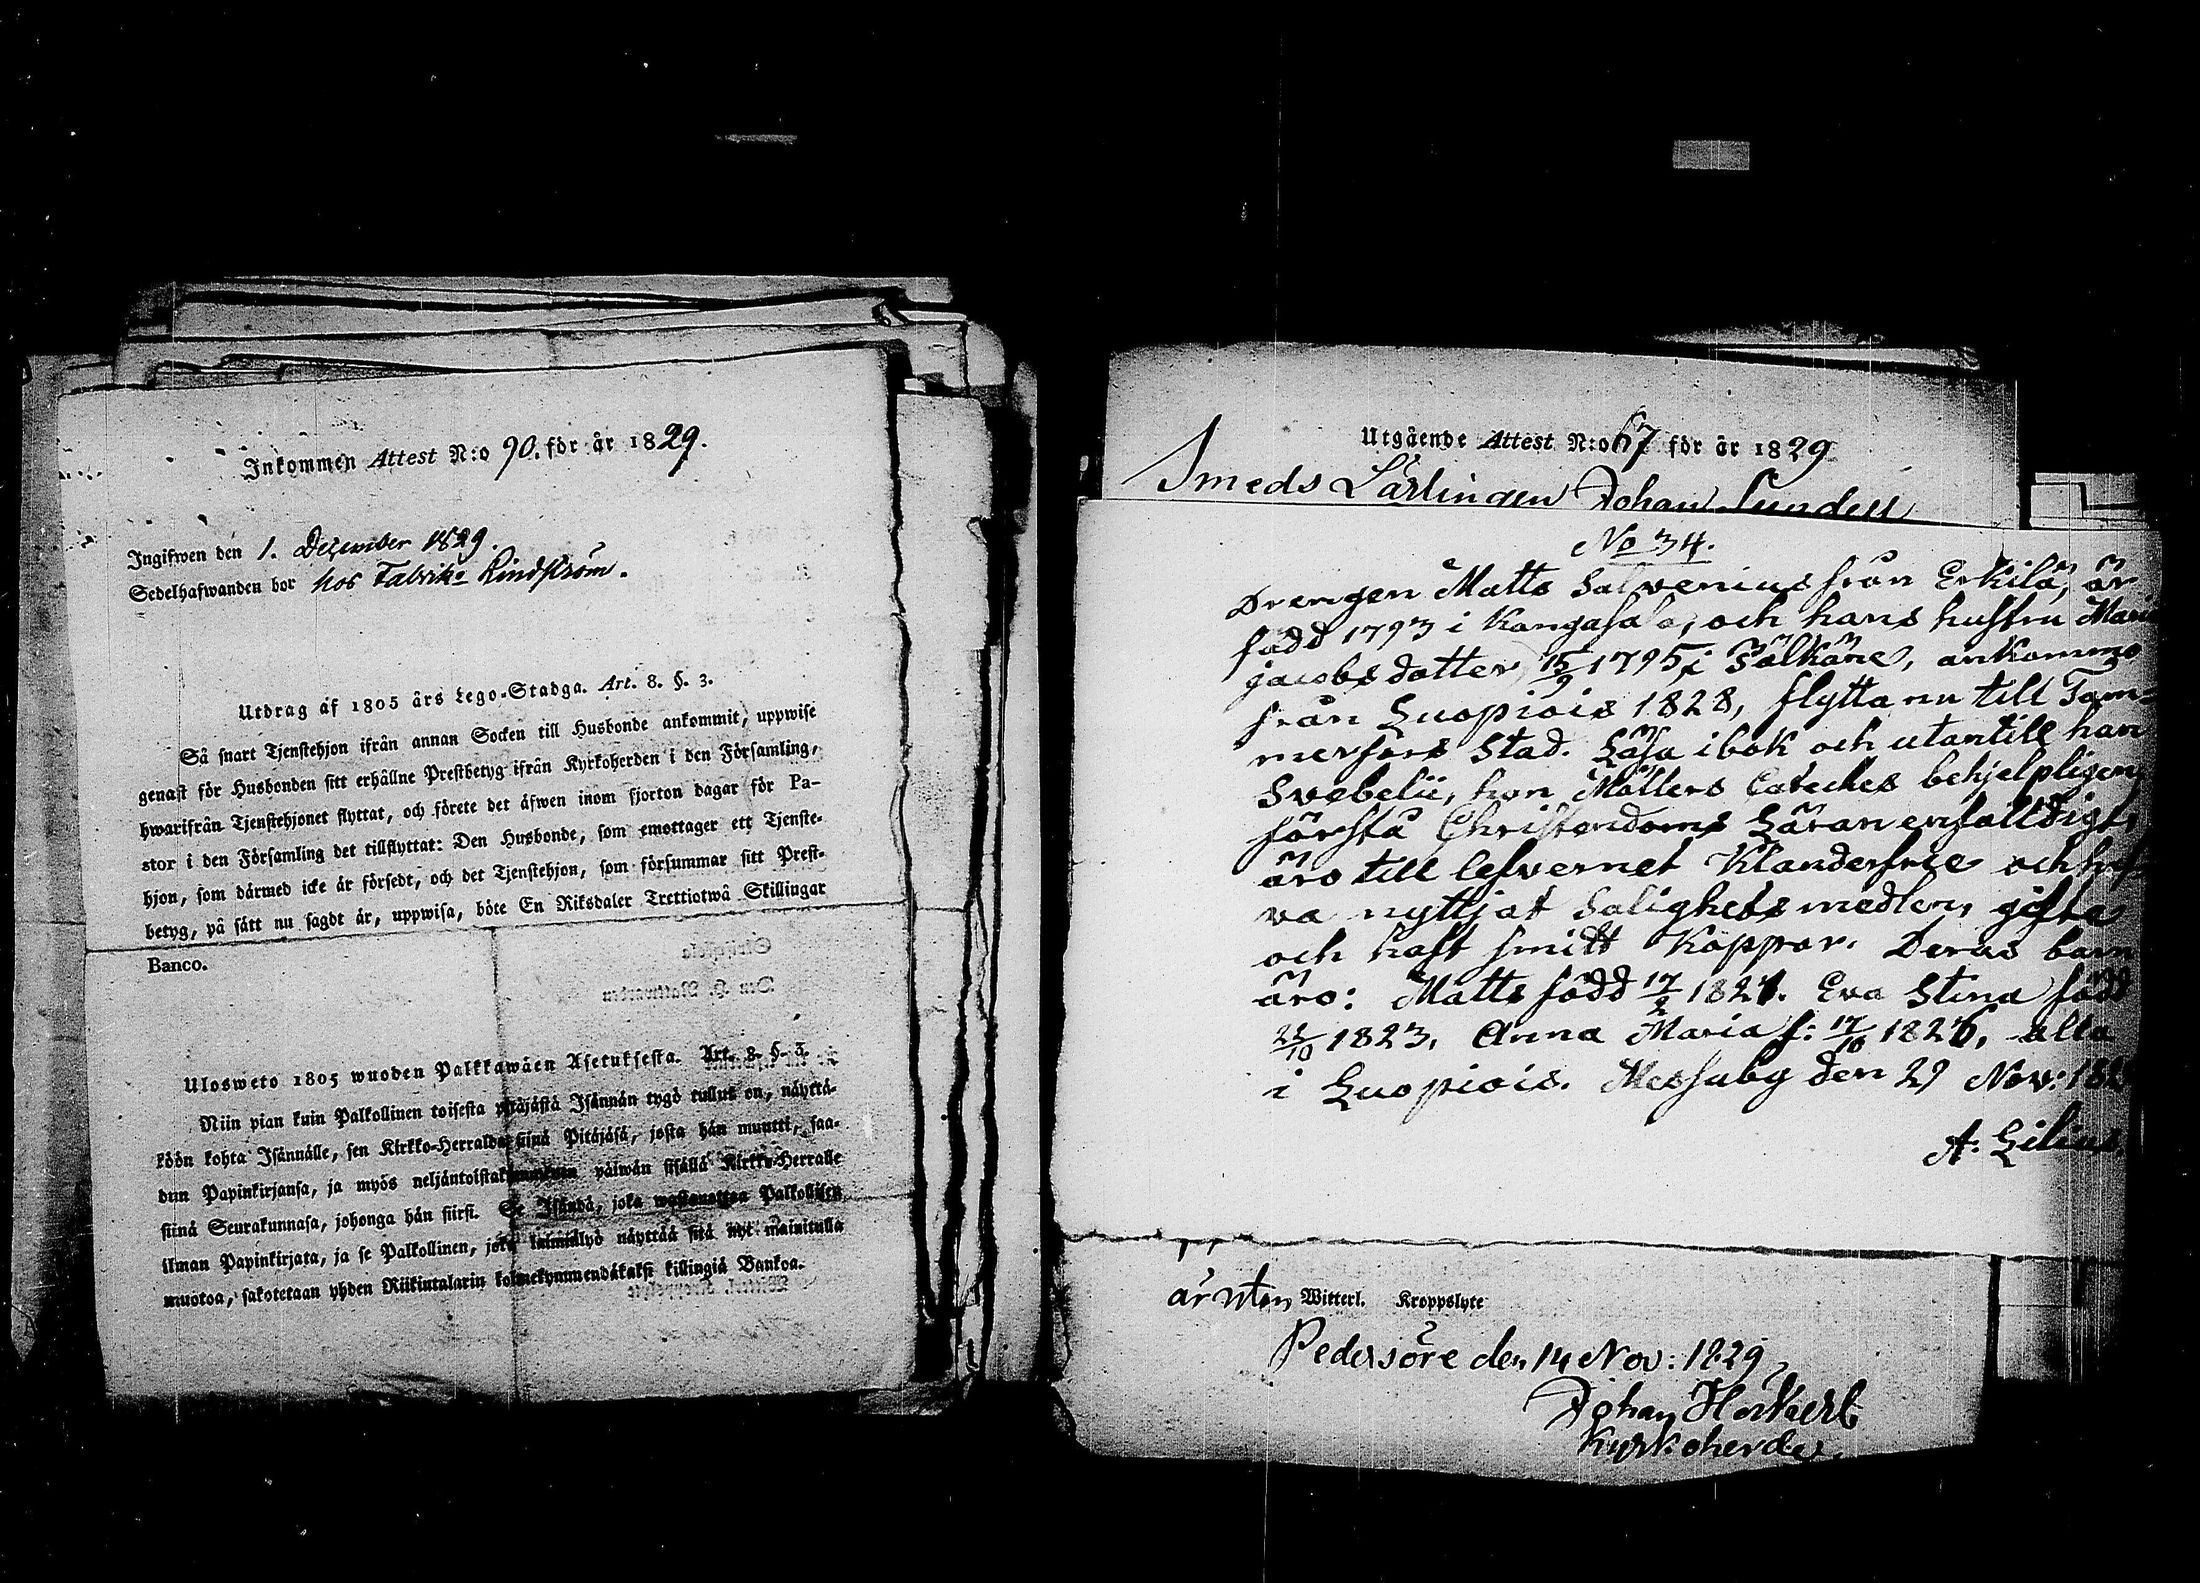 Inkommen Attest N:o 90. för år 1829.
Ingifwen den 1. December 1829.
Sedelhafwanden bor hos Fabrik: Lindström.
Utdrag af 1805 års Lego-Stadga. Art. 8. §. 3.
Så snart Tjenstehjon ifrån annan Socken till Husbonde ankommit, uppwise
genast för Husbonden sitt erhållne Prestbetyg ifrån Kyrkoherden i den Församling,
hwarifrån Tjenstehjonet flyttat, och förete det äfwen inom fjorton dagar för Pa-
stor i den Församling det tillflyttat: Den Husbonde, som emottager ett Tjenste-
hjon, som därmed icke är försedt, och det Tjenstehjon, som försummar sitt Prest-
betyg, på sätt nu sagdt är, uppwisa, böte En Riksdaler Trettiotwå Skillingar
Banco.
Ulosweto 1805 wuoden Palkkawäen Asetuksesta. Art. 8. §. 3.
Niin pian kuin Palkollinen toisesta pitäjästä Isännän tygö tullut on, näyttä-
köön kohta Isännälle, sen Kirkko-Herralda siinä Pitäjäsä, josta hän muutti, saa-
dun Papinkirjansa, ja myös neljäntoistakymmenen päiwän sisällä Kirkko-Herralle
siinä Seurakunnasa, johonga hän siirsi. Se Isändä, joka wastanottaa Palkollisen
ilman Papinkirjata, ja se Palkollinen, joka laiminlyö näyttää sitä nyt mainitulla
muotoa, sakotetaan yhden Riikintalarin kolmekymmendäkaksi killingiä Bankoa.
Utgående Attest N:o 67 för år 1829
Smeds Lärlingen Johan Lundell
No 34.
Drengen Matts Salvenius från Erkilä, är
född 1793 i Kangasala, och hans hustru Mari
Jacobsdotter 15/9 1795 i Pälkäne, ankommo
från Luopiois 1828, flytta nu till Tam-
merfors Stad. Läsa i bok och utantill han
Svebelii, hon Möllers Cateches behjelpligen,
förstå Christendoms Läran enfalldigt,
äro till lefvernet Klanderfrie och haf-
va nyttjat Salighetsmedlen, gifte
och haft smitt Koppor. Deras barn
äro: Matts född 17/2 1821. Eva Stina född
22/10 1823, Anna Maria f: 17/10 1826, alla
i Luopiois. Messuby den 29 Nov: 182
A. Lilius.
är utan Witterl. Kroppslyte
Pedersöre den 14 Nov: 1829
Johan
Kyrkoherde.